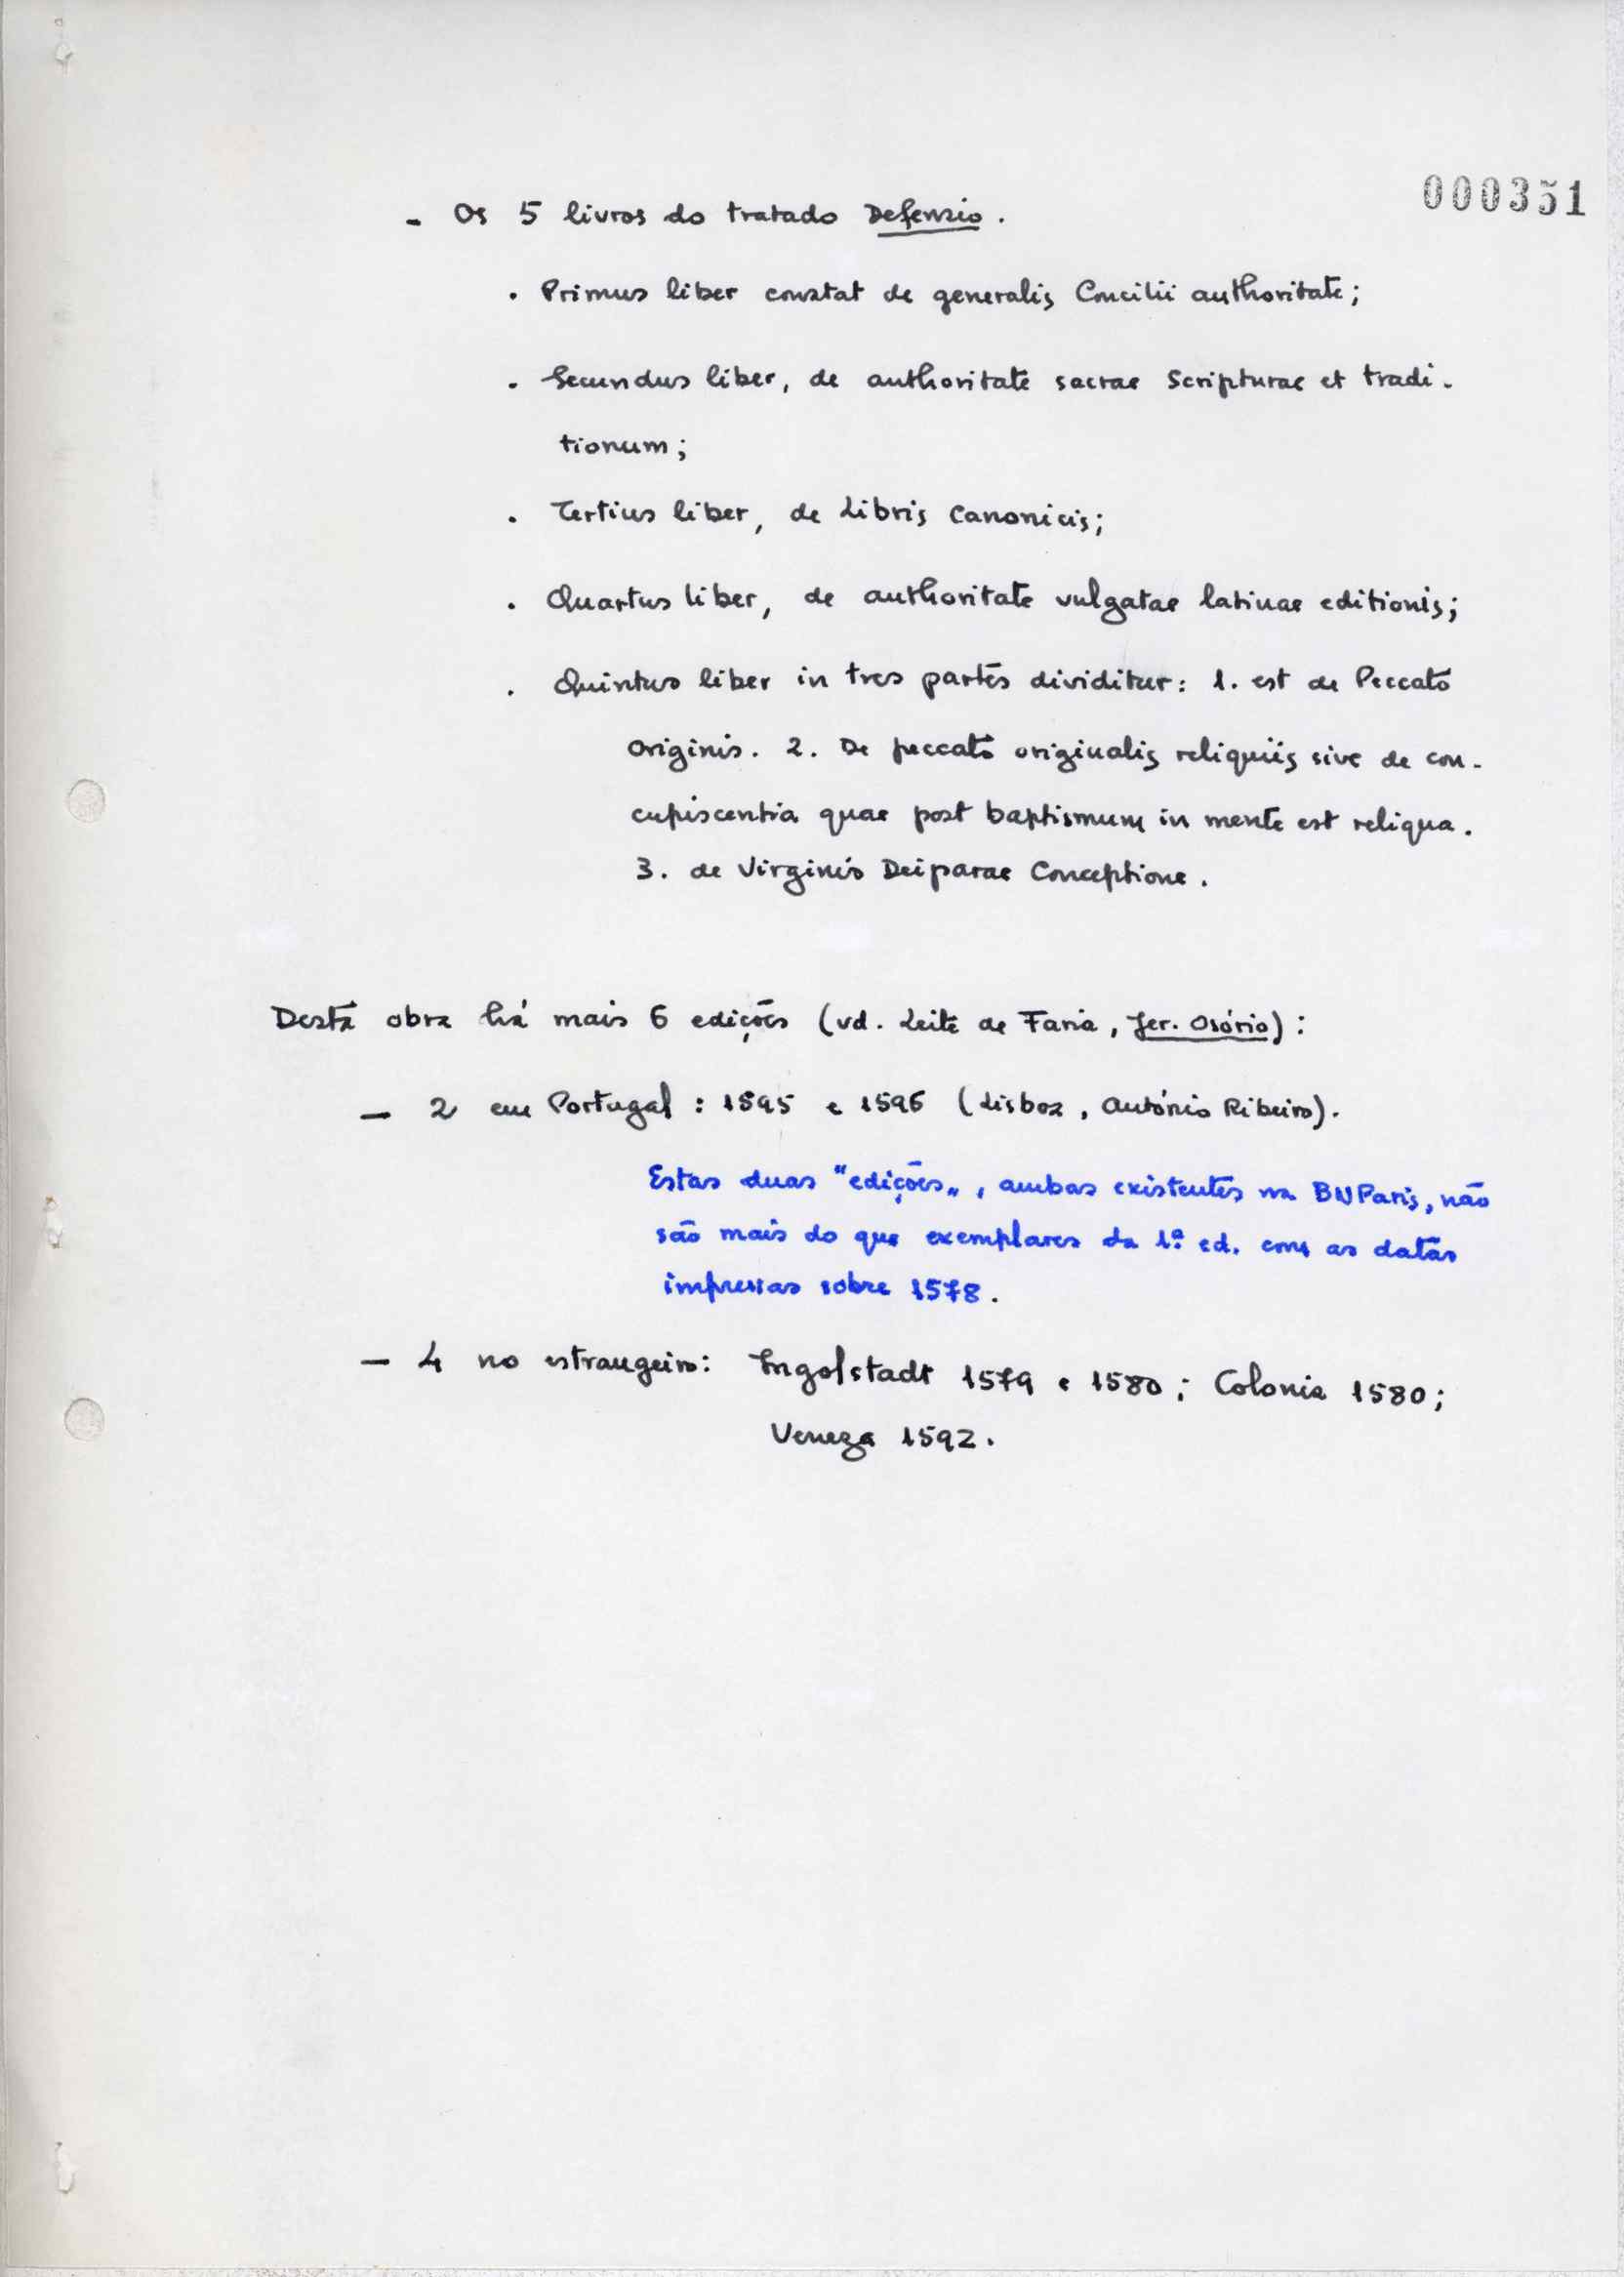 000351
- Os 5 livros do tratado Defensio.
. Primus liber constat de generalis Concilii authoritate;
. Secundus liber, de authoritate sacrae Scripturae et tradi-
tionum;
. Tertius liber, de Libris Canonicis;
. Quartus liber, de authoritate vulgatae latinae editionis;
. Quintus liber in tres partes dividitur: 1. est de Peccato
originis. 2. De peccato originalis reliquiis sive de con-
cupiscentia quae post baptismum in mente est reliqua.
3. de Virginis Deiparae Conceptione.
Desta obra há mais 6 edições (vd. Leite de Faria, Jer. Osório):
— 2 em Portugal: 1595 e 1596 (Lisboa, António Ribeiro).
Estas duas "edições", ambas existentes na BNParis, não
são mais do que exemplares da 1ª ed. com as datas
impressas sobre 1578.
— 4 no estrangeiro: Ingolstadt 1579 e 1580; Colonia 1580;
Veneza 1592.